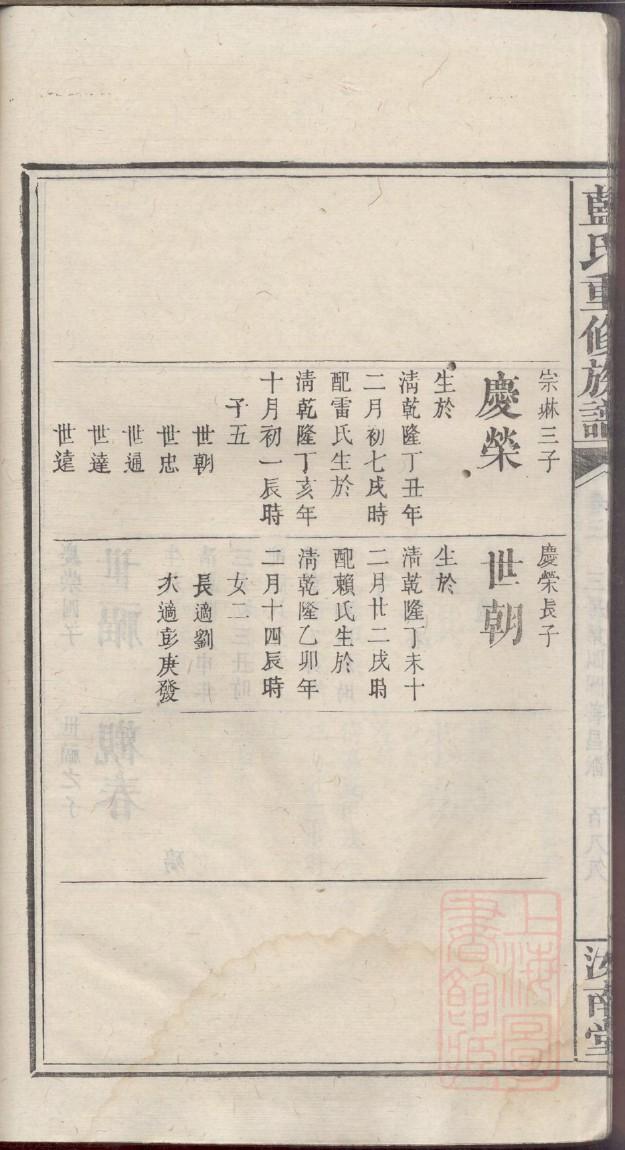 藍氏重修族譜
汝南堂
宗琳三子
慶榮
生於
清乾隆丁丑年
二月初七戌時
配雷氏生於
清乾隆丁亥年
十月初一辰時
子五
世朝
世忠
世通
世達
世遠
慶榮長子
世朝
生於
清乾隆丁未十
二月廿二戌時
配賴氏生於
清乾隆乙卯年
二月十四辰時
女二
長適劉
次適彭庚發
上海圖
書館藏